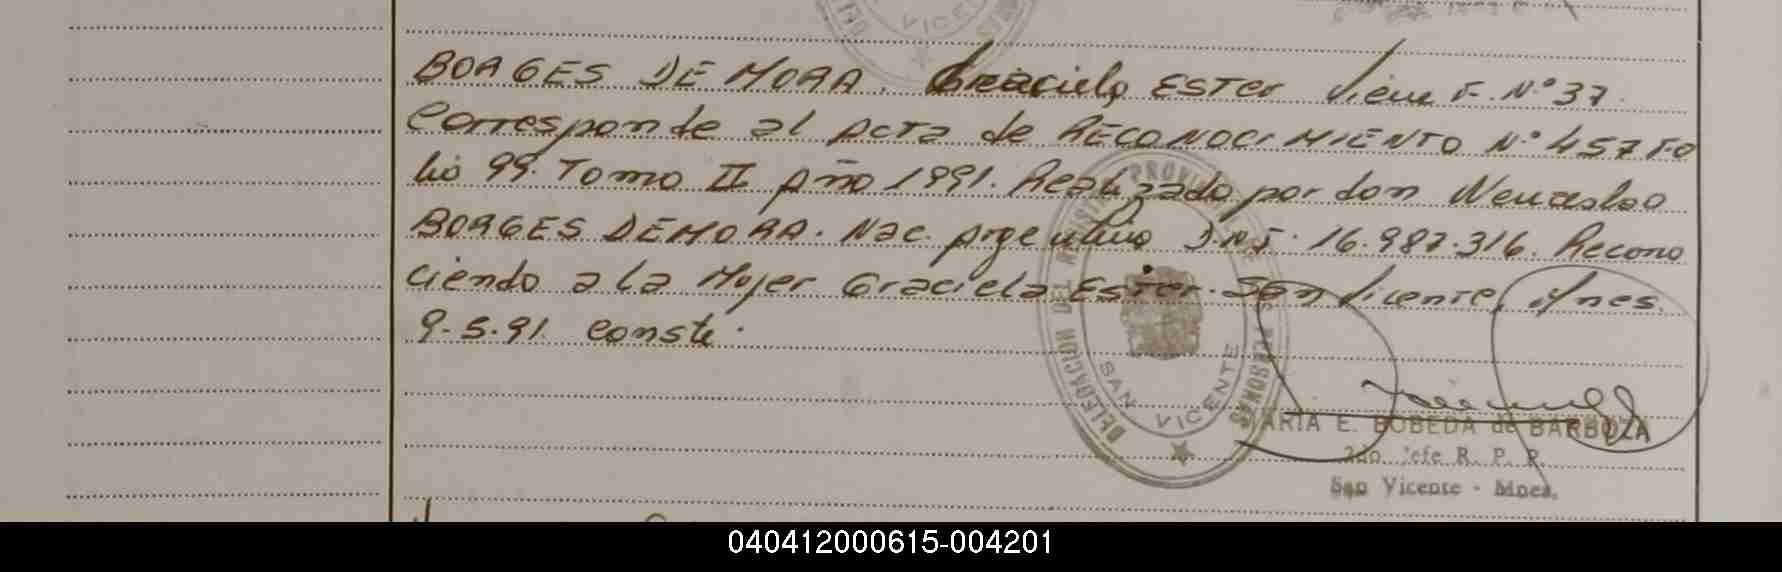 VICENTE
BORGES DE MORA. Graciela ESTer Viene F. N° 37.
Corresponde al Acta de RECONOCIMIENTO N° 457 Fo
lio 99. Tomo II Año 1991. Realizado por don Wenceslao
BORGES DEMORA. Nac. Argentino D.N.I. 16.987.316. Recono
ciendo a la Mujer Graciela Ester. San Vicente, Mnes.
9-5-91. Conste.
DELEGACION DEL REGIST PROVINCIAL DE LAS PERSONAS
SAN VICENTE
MARIA E. BOBEDA de BARBOZA
2do Jefe R. P. P.
San Vicente - Mnes.
040412000615-004201